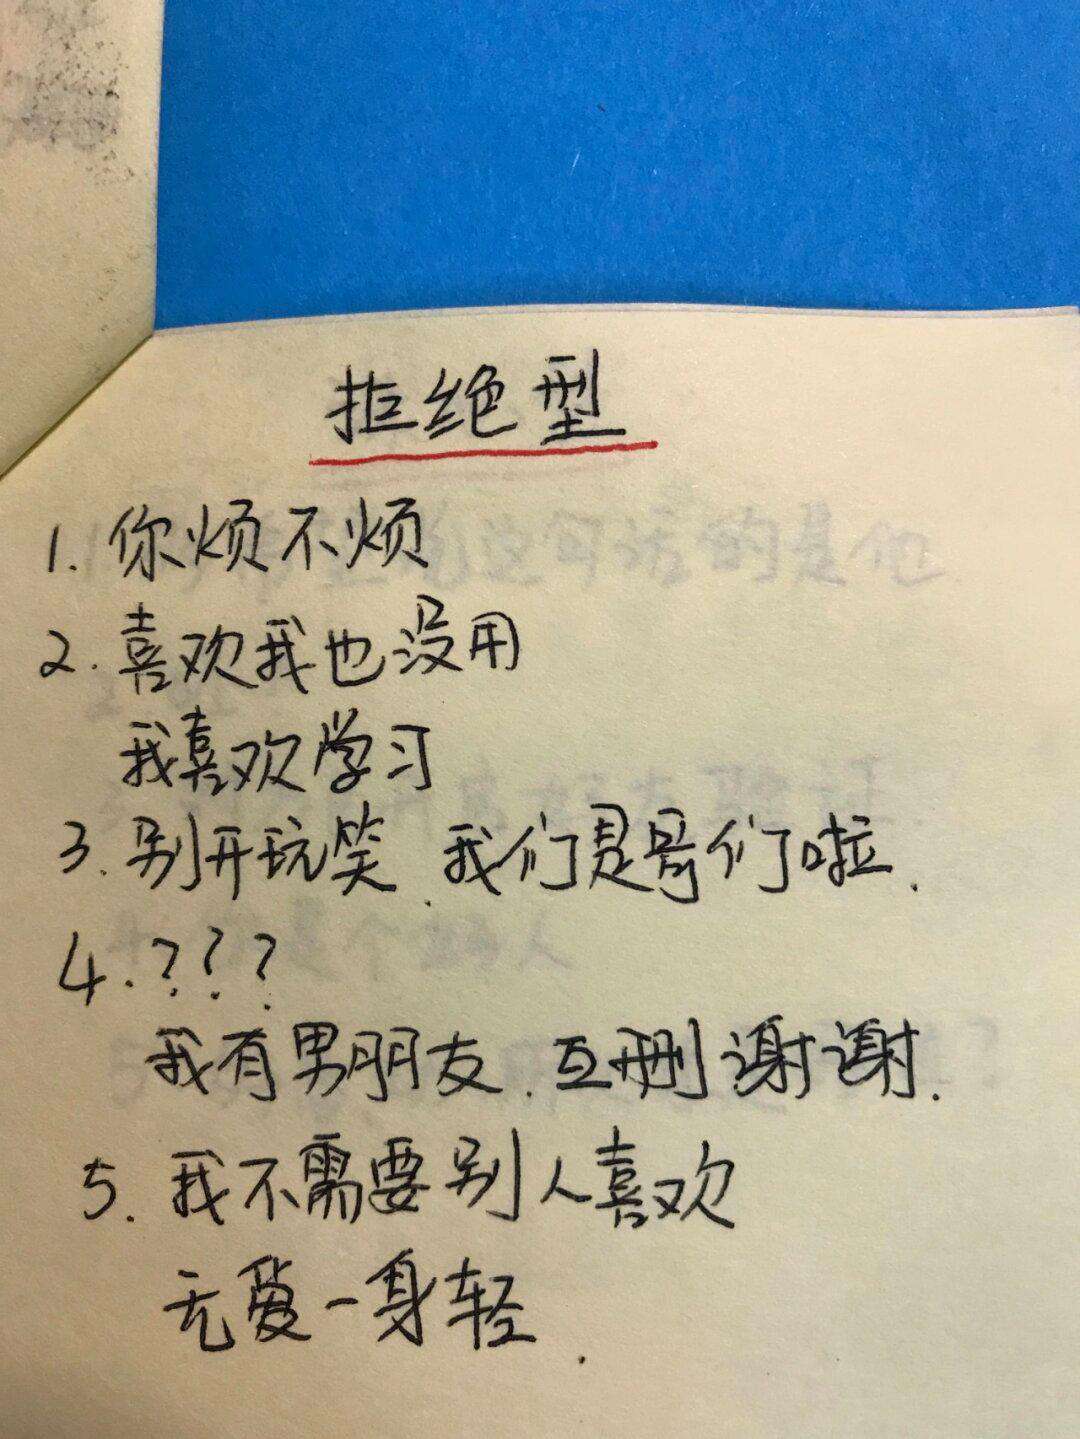 拒绝型
1. 你烦不烦
2. 喜欢我也没用
我喜欢学习
3. 别开玩笑.我们是哥们啦.
4. ???
我有男朋友.互删谢谢.
5. 我不需要别人喜欢
无爱一身轻.